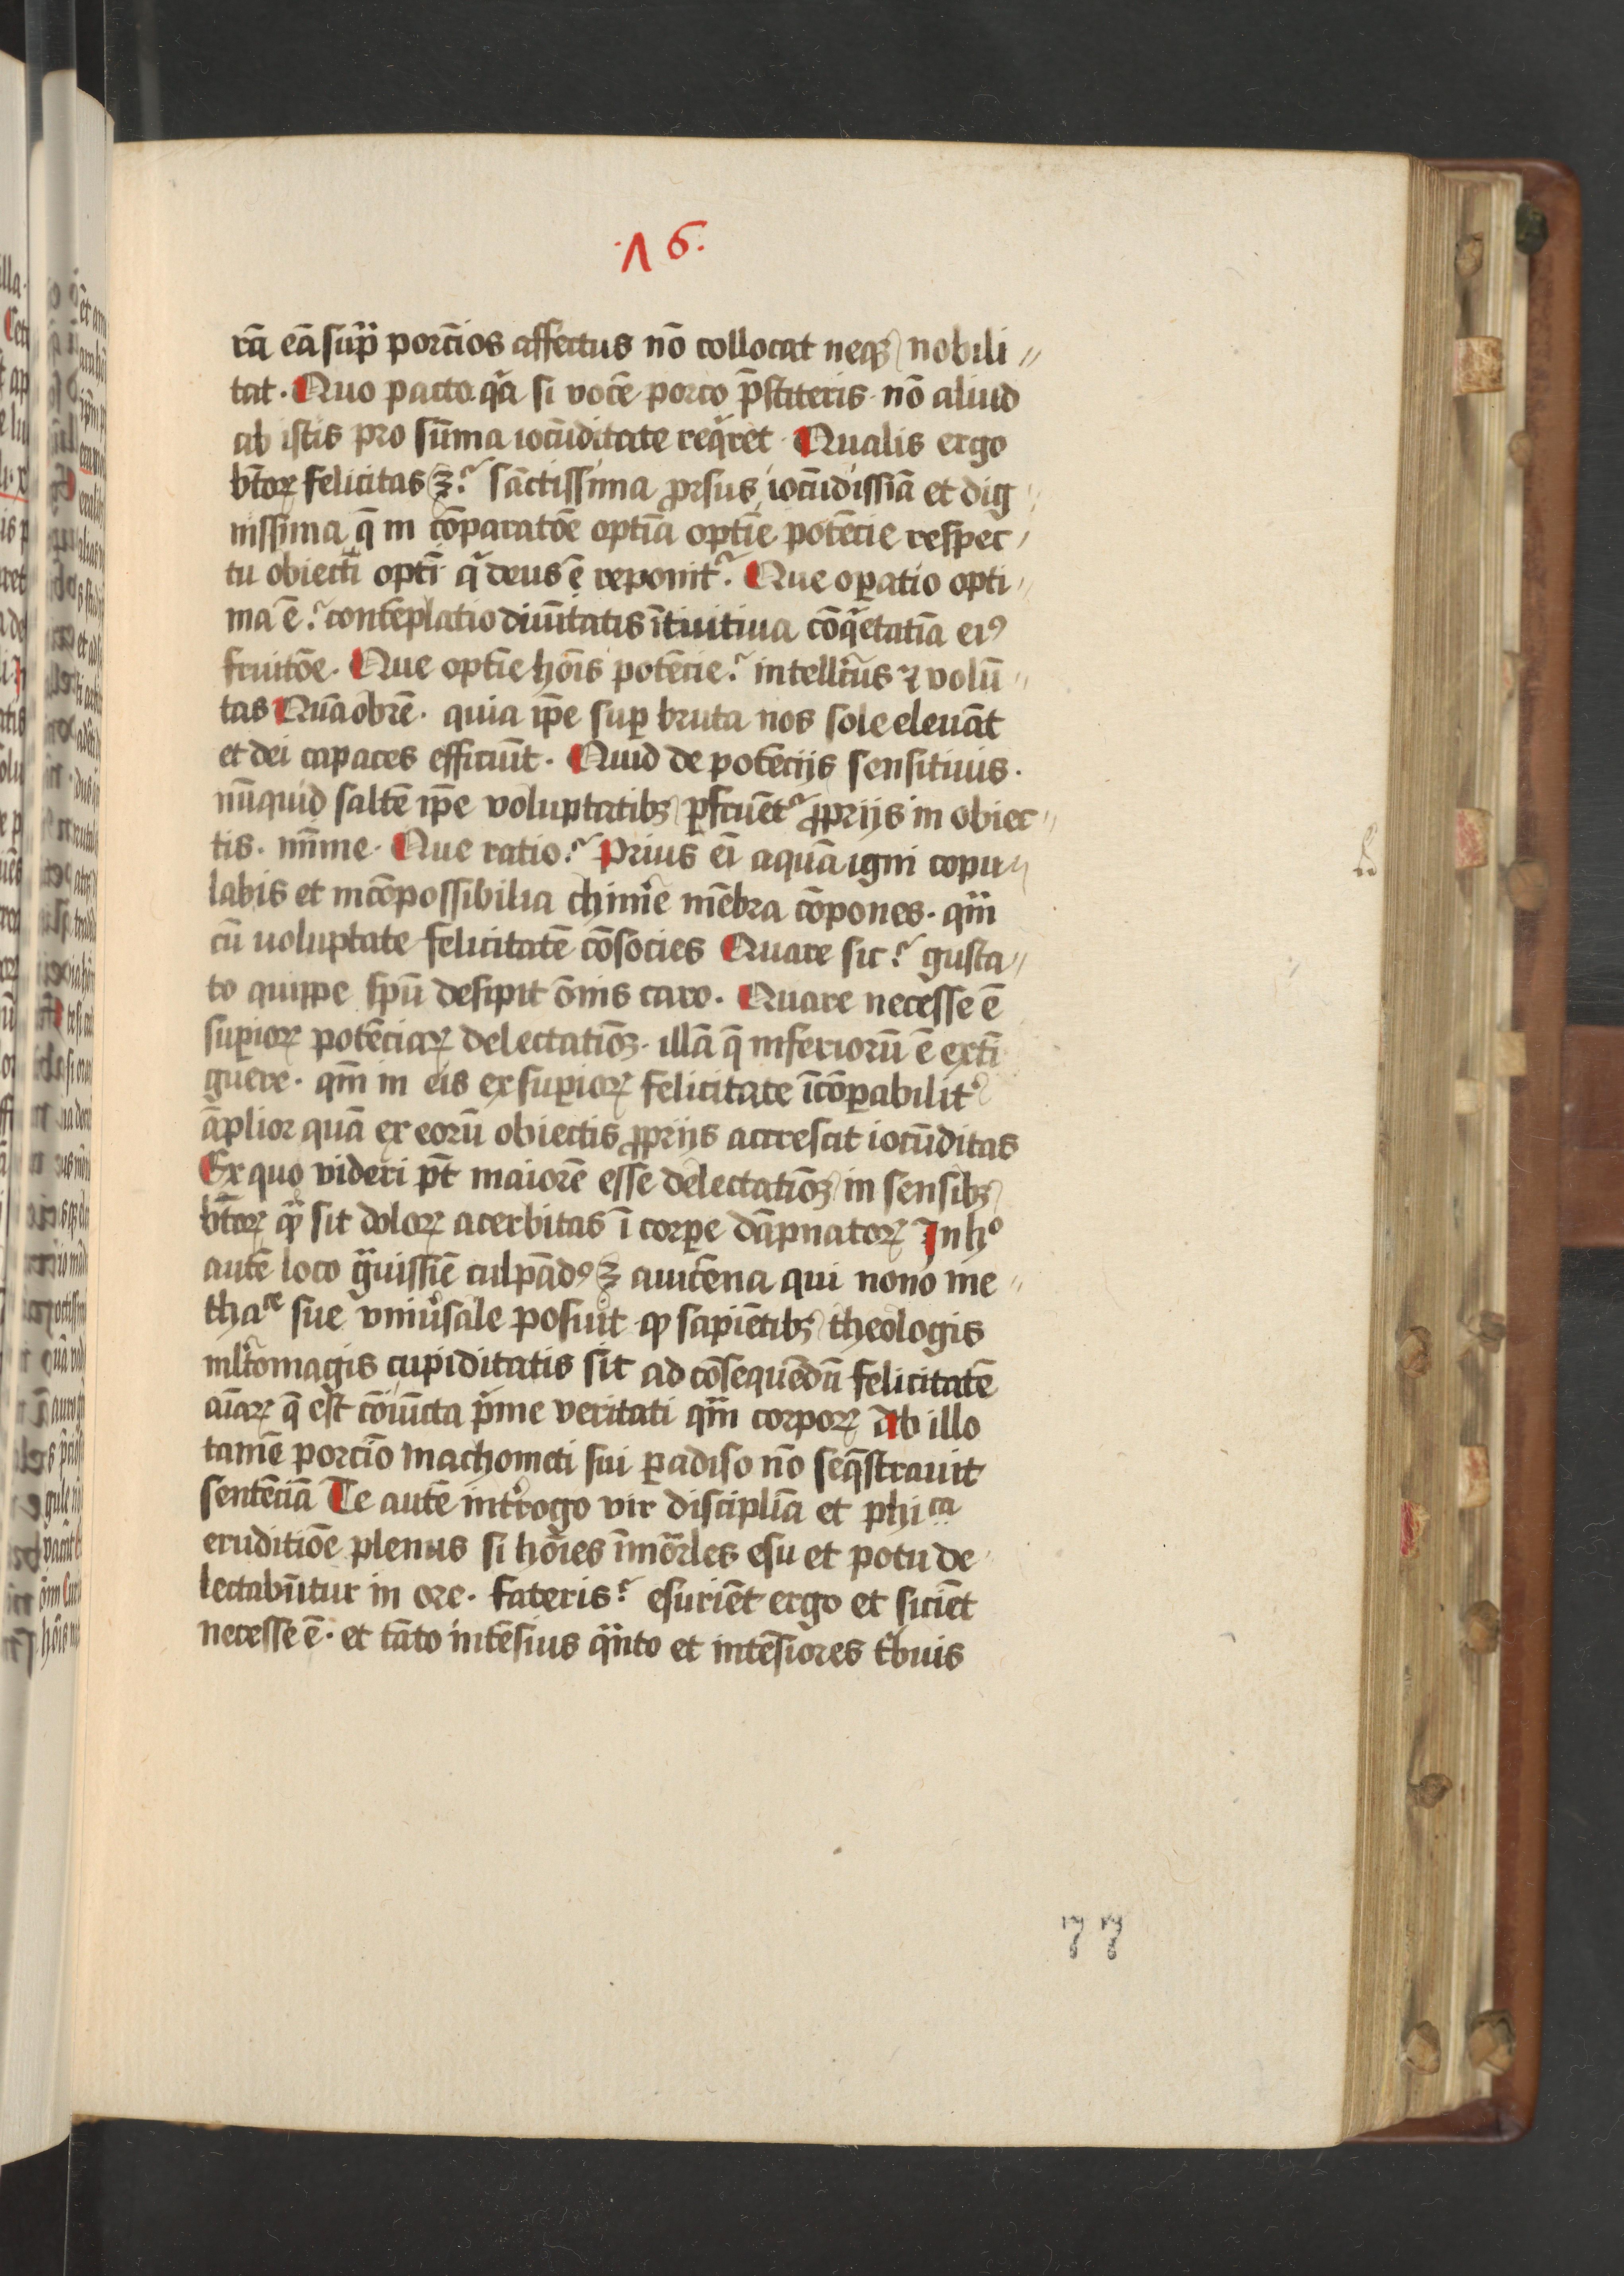 ·16·
rā eā sup̄ porc̄ios affectus nō collocat neqꝫ nobili〃
tat · Quo pacto · qͣa si vocē porco p̄stiteris · nō aliud
ab istis pro sūma iocūditate reqͥret · Qualis ergo
bt̄oꝝ felicitas ē? sāctissima ꝓrsus iocūdissīa et dig
nissima q̄ in cōparatōe optīa optīe potēcie respec
tu obiecti optī qͥ deus ē reponitʳ? Que oꝑatio opti
ma ē? contēplatio diuītatis ītuitiua cōqͥetatīa eiꝰ
fruitōe · Que optīe hōis potēcie? intellcūs ⁊ volū
tas Quāobrē · quia ip̄e suꝑ bruta nos sole eleuāt
et dei capaces efficiūt · Quid de potēcijs sensitiuis ·
nūquid saltē ip̄e voluptatibꝫ ꝑfruētʳ ꝓprijs in obiec〃
tis · mīme · Que ratio? Prius eī aquā igni copu〃
labis et incōpossibilia chimere mēbra cōpones · qͣm
cū uoluptate felicitatē cōsocies Quare sic? gusta〃
to quippe spū desipit ōmis caro · Quare necesse ē
supioꝝ potēciaꝝ delectatiōꝫ · illā q̄ inferiorū ē extī
guere · qm̄ in eis ex supioꝝ felicitate īcōꝑabilitʳ
āplior quā ex eorū obiectis ꝓprijs accrescit iocūditas
Ex quo videri pt̄ maiorē esse delectatiōꝫ in sensibꝫ
bt̄oꝝ qͣꝫ sit doloꝝ acerbitas ī corꝑe dāpnatoꝝ In hͦ
autē loco gͣuissīe culpādꝰ ē auicēna qui nono me〃
thaᶜᵉ sue vniuͥsale posuit ꝙ sapiētibꝫ theologis
ml̄to magis cupiditatis sit ad cōsequēdū felicitatē
aīaꝝ q̄ est cōiūcta pͥme veritati qͣm corpoꝝ Ab illo
tamē porcīo machometi sui ꝑadiso nō seq̄strauit
sentēciā Te autē intʳrogo vir disciplīa et phiᶜᵃ
eruditiōe plenus si hōies īmorͣles esu et potu de
lectabūtur in ore · fateris? esuriēt ergo et siciēt
necesse ē · et tāto intēsius qͣnto et intēsiores tͥbuis
77